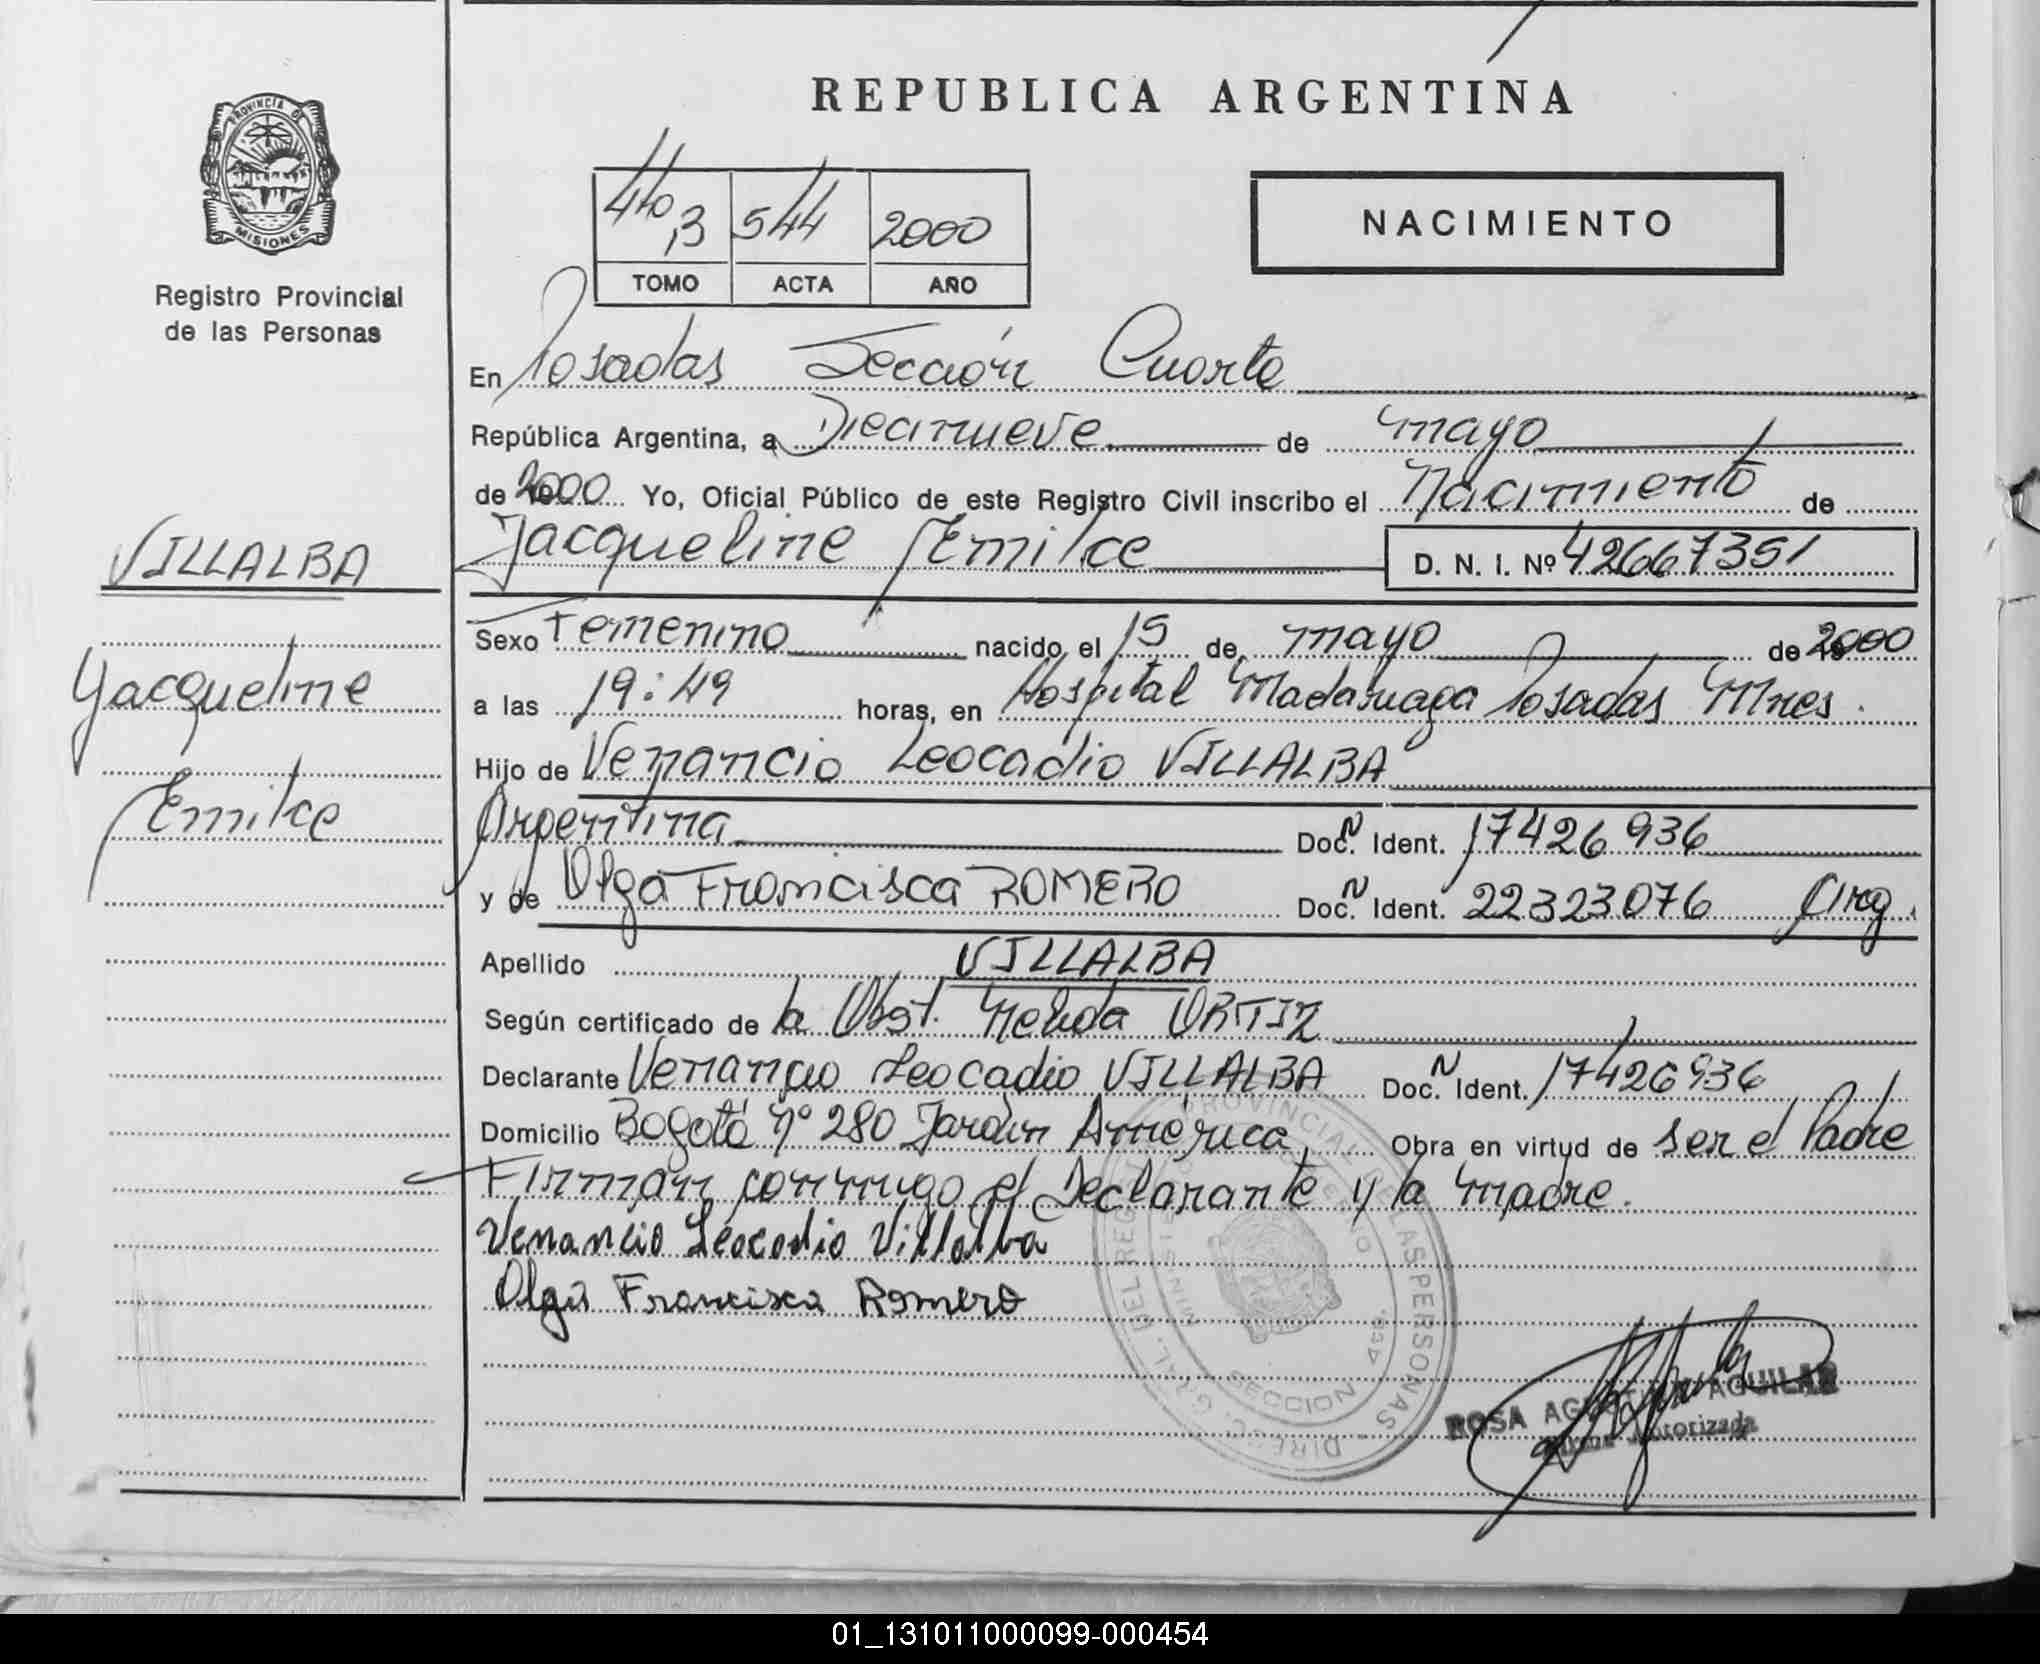 REPUBLICA ARGENTINA
PROVINCIA DE
MISIONES
Registro Provincial
de las Personas
440 3 544 2000
TOMO ACTA AÑO
NACIMIENTO
En Posadas Sección Cuarta
República Argentina, a Diecinueve de mayo
de 2000 Yo, Oficial Público de este Registro Civil inscribo el Nacimiento de
Jacqueline Emilce D. N. I. Nº 42667351
VILLALBA
Yacqueline
Emilce
Sexo Femenino nacido el 15 de mayo de 2000
a las 19:49 horas, en Hospital Madariaga Posadas Mnes.
Hijo de Venancio Leocadio VILLALBA
Argentina Doc. N Ident. 17426936
y de Olga Francisca ROMERO Doc. N Ident. 22323076 Arg.
Apellido VILLALBA
Según certificado de la Obst. Nelida ORTIZ
Declarante Venancio Leocadio VILLALBA Doc. N Ident. 17426936
Domicilio Bogotá Nº 280 Jardín América Obra en virtud de ser el Padre
Firman conmigo el Declarante y la madre.
Venancio Leocadio Villalba
Olga Francisca Romero
DIREC. GRAL. DEL REGIST. PROVINCIAL DE LAS PERSONAS
SECCION 4ta.
ROSA AGUILAR
Autorizada
01_131011000099-000454